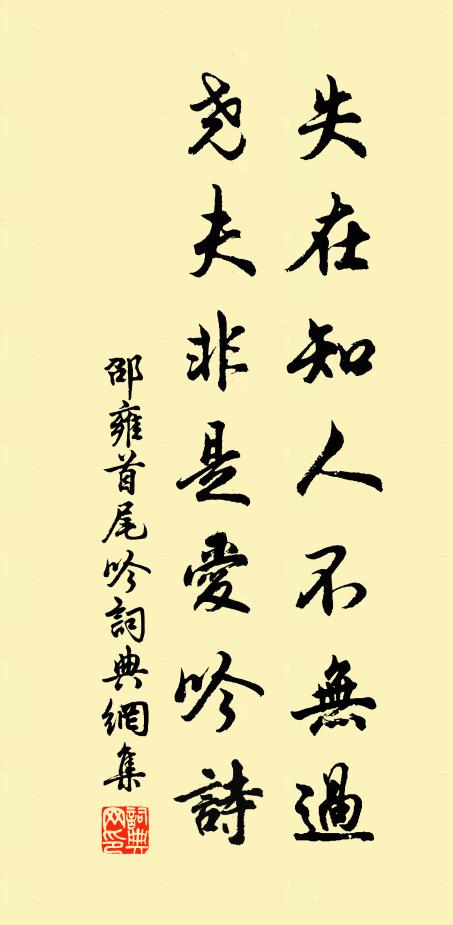 失在知人不無過
堯夫非是愛吟詩
邵雍首尾吟詞典網集
詞典网印